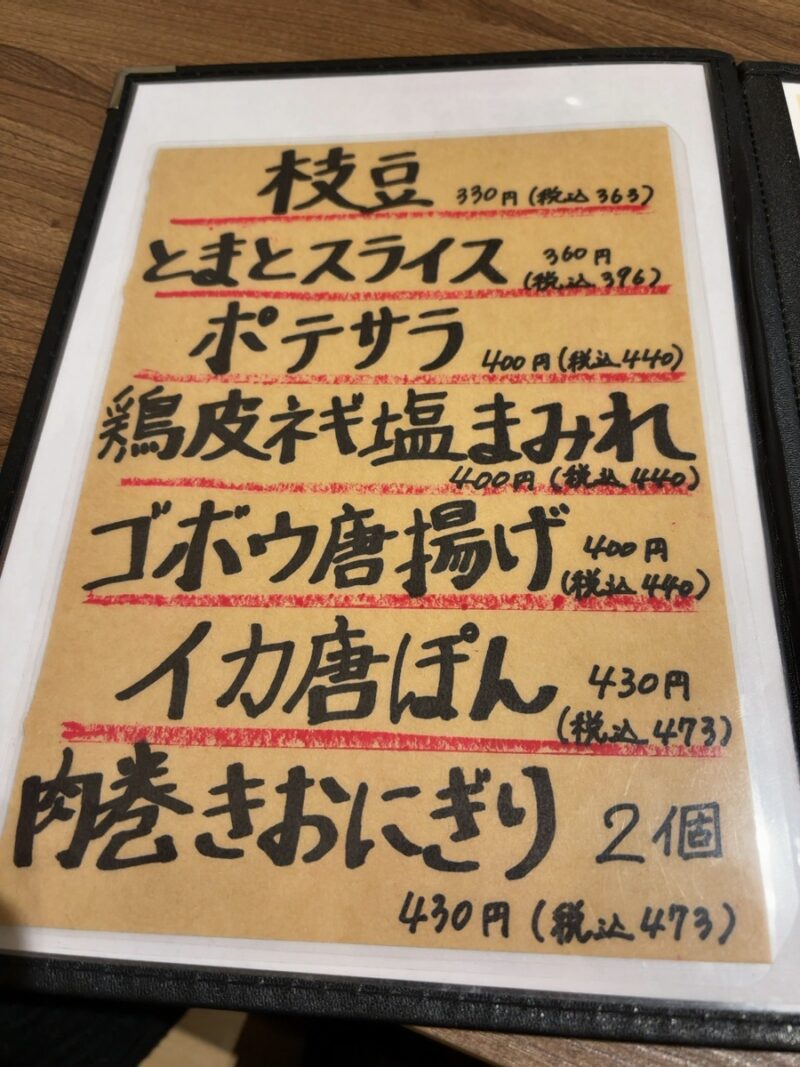 枝豆 330円(税込363)
とまとスライス 360円
(税込396)
ポテサラ 400円(税込440)
鶏皮ネギ塩まみれ
400円(税込440)
ゴボウ唐揚げ 400円
(税込440)
イカ唐ぽん 430円
(税込473)
肉巻きおにぎり 2個
430円(税込473)